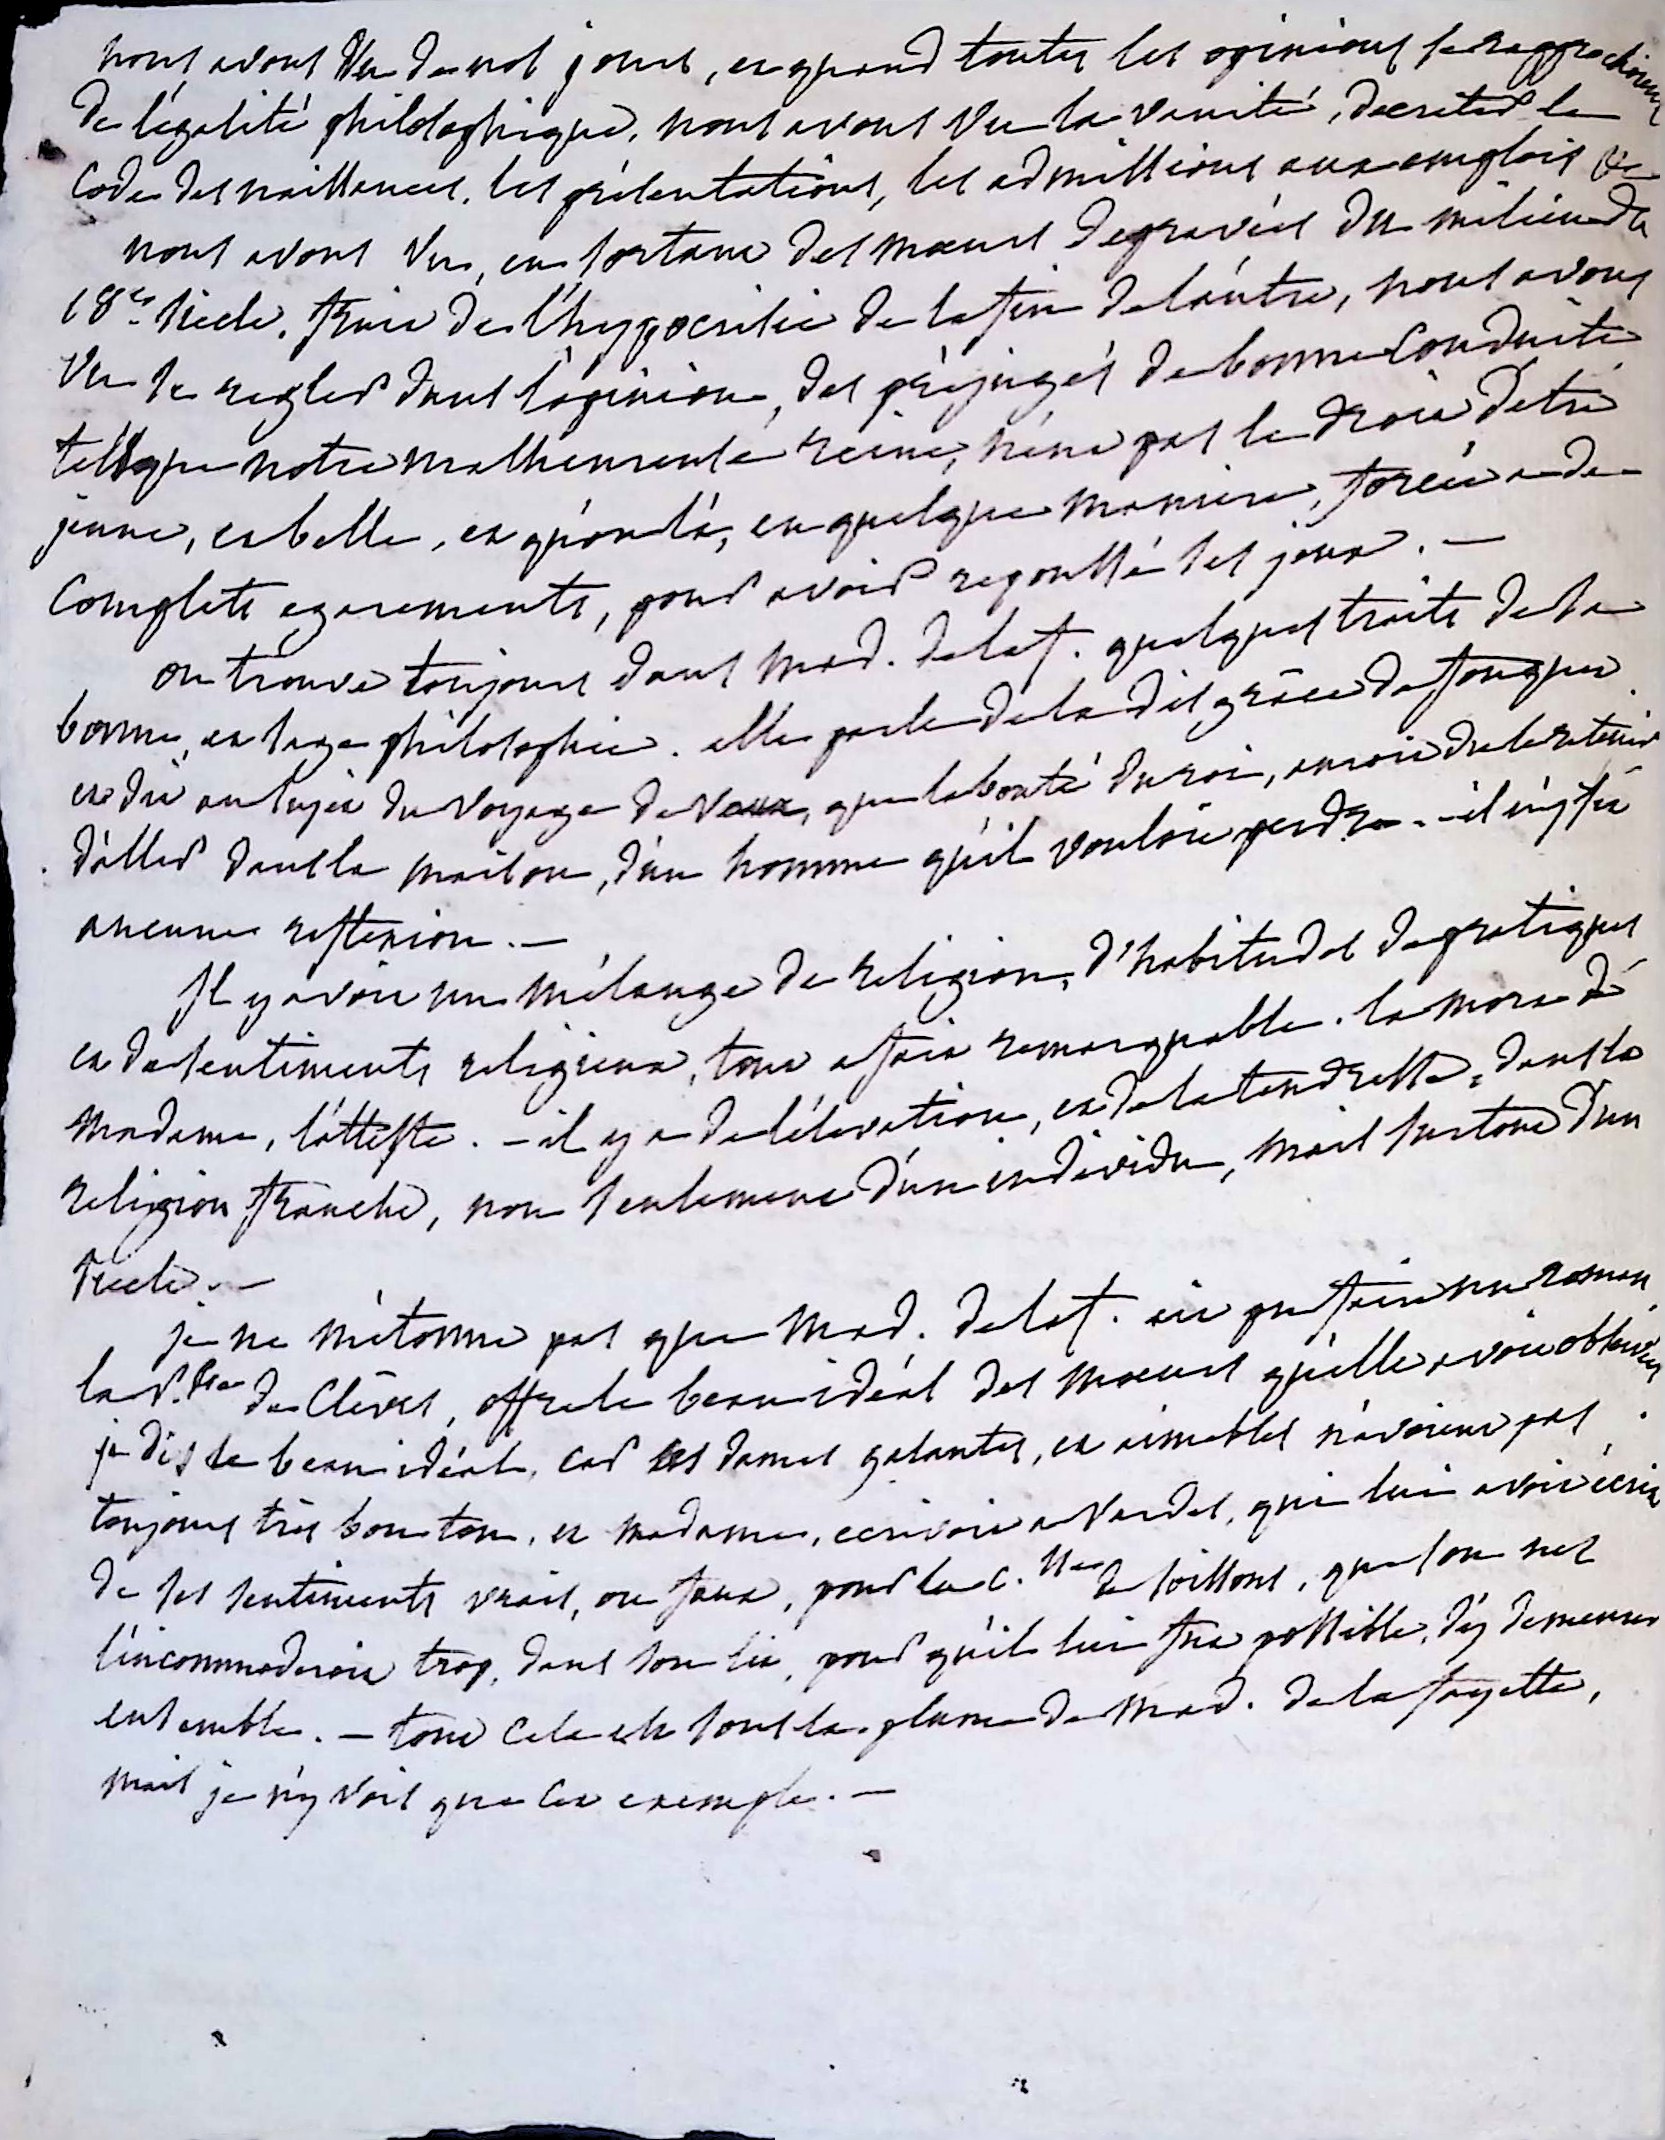 nous avons vu de nos jours, et quand toutes les opinions se rapprochoient
de l'égalité philosophique, nous avons vu la vanité, decreter le
code des naissances, les présentations, les admissions aux emplois &c
nous avons vu, en sortant des mœurs dégravées du milieu du
18e siecle, fruit de l'hyppocrisie de la fin de l'autre, nous avons
vu se regler dans l'opinion, des préjugés de bonne conduite
tels que notre malheureuse reine, n'eut pas le droit d'etre
jeune, et belle, et qu'on l'a, en quelque maniere, forcée a de
complets egarements, pour avoir repoussé ses jeux. —
on trouve toujours dans mad. de la f. quelques traits de sa
bonne, et sage philosophie. elle parle de la disgrâce de fouquet
et dit au sujet du voyage de Vaux, que la bonté du roi, auroit du le retenir
d'aller dans la maison, d'un homme qu'il vouloit perdre. - il n'y fit
aucune reflexion. —
Il y avoit un mélange de religion, d'habitudes de pratiques
et de sentiments religieux, tout a fait remarquable. la mort de
madame, l'atteste. - il y a de l'élevation, et de la tendresse, dans la
religion franche, non seulement d'un individu, mais surtout d'un
siecle. —
je ne m'étonne pas que mad. de la f. ait pu faire un roman
la P.sse de Clèves, offre le beau idéal des mœurs qu'elle avoit observées
je dis le beau idéal, car les dames galantes, et aimables n'avoient pas
toujours très bon ton, et madame, ecrivoit a Vardes, qui lui avoit écrit
de ses sentiments vrais, ou faux, pour la c.sse de soissons, que son nez
l'incommoderoit trop, dans son lit, pour qu'il lui fut possible, d'y demeurer
ensemble. — tout cela est sous la plume de mad. de la fayette,
mais je n'y vois que cet exemple. —